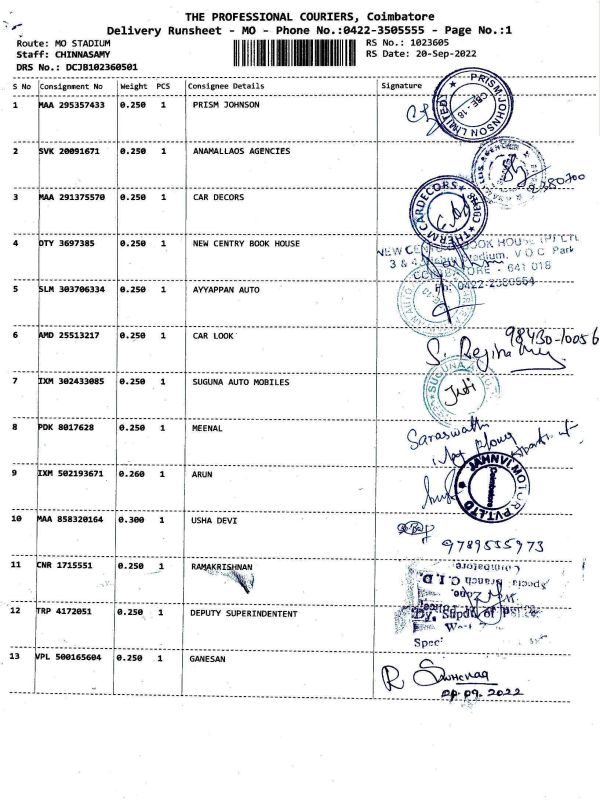 THE PROFESSIONAL COURIERS, Coimbatore
Delivery Runsheet - MO - Phone No.:0422-3505555 - Page No.:1
Route: MO STADIUM RS No.: 1023605
Staff: CHINNASAMY RS Date: 20-Sep-2022
DRS No.: DCJB102360501
S No Consignment No Weight PCS Consignee Details Signature
1 MAA 295357433 0.250 1 PRISM JOHNSON
PRISM JOHNSON LIMITED
CBE - 18
2 SVK 20091671 0.250 1 ANAMALLAOS AGENCIES
2380700
3 MAA 291375570 0.250 1 CAR DECORS
THERM CARDECORS
4 DTY 3697385 0.250 1 NEW CENTRY BOOK HOUSE
NEW CENTURY BOOK HOUSE (P) LTD
Stadium, V.O.C. Park
COIMBATORE - 641 018
Ph: 0422-2380554
5 SLM 303706334 0.250 1 AYYAPPAN AUTO
6 AMD 25513217 0.250 1 CAR LOOK
98430-10056
S. Regina
7 IXM 302433085 0.250 1 SUGUNA AUTO MOBILES
SUGUNA AUTO
8 PDK 8017628 0.250 1 MEENAL
Saraswathi
9 IXM 502193671 0.260 1 ARUN
JAHNVI MOTOR PVT.LTD
Coimbatore
10 MAA 858320164 0.300 1 USHA DEVI
9789555973
11 CNR 1715551 0.250 1 RAMAKRISHNAN
Coimbatore
Special Branch C.I.D.
12 TRP 4172051 0.250 1 DEPUTY SUPERINDENTENT
Dy. Supdt of
13 VPL 500165604 0.250 1 GANESAN
R
09.09.2022